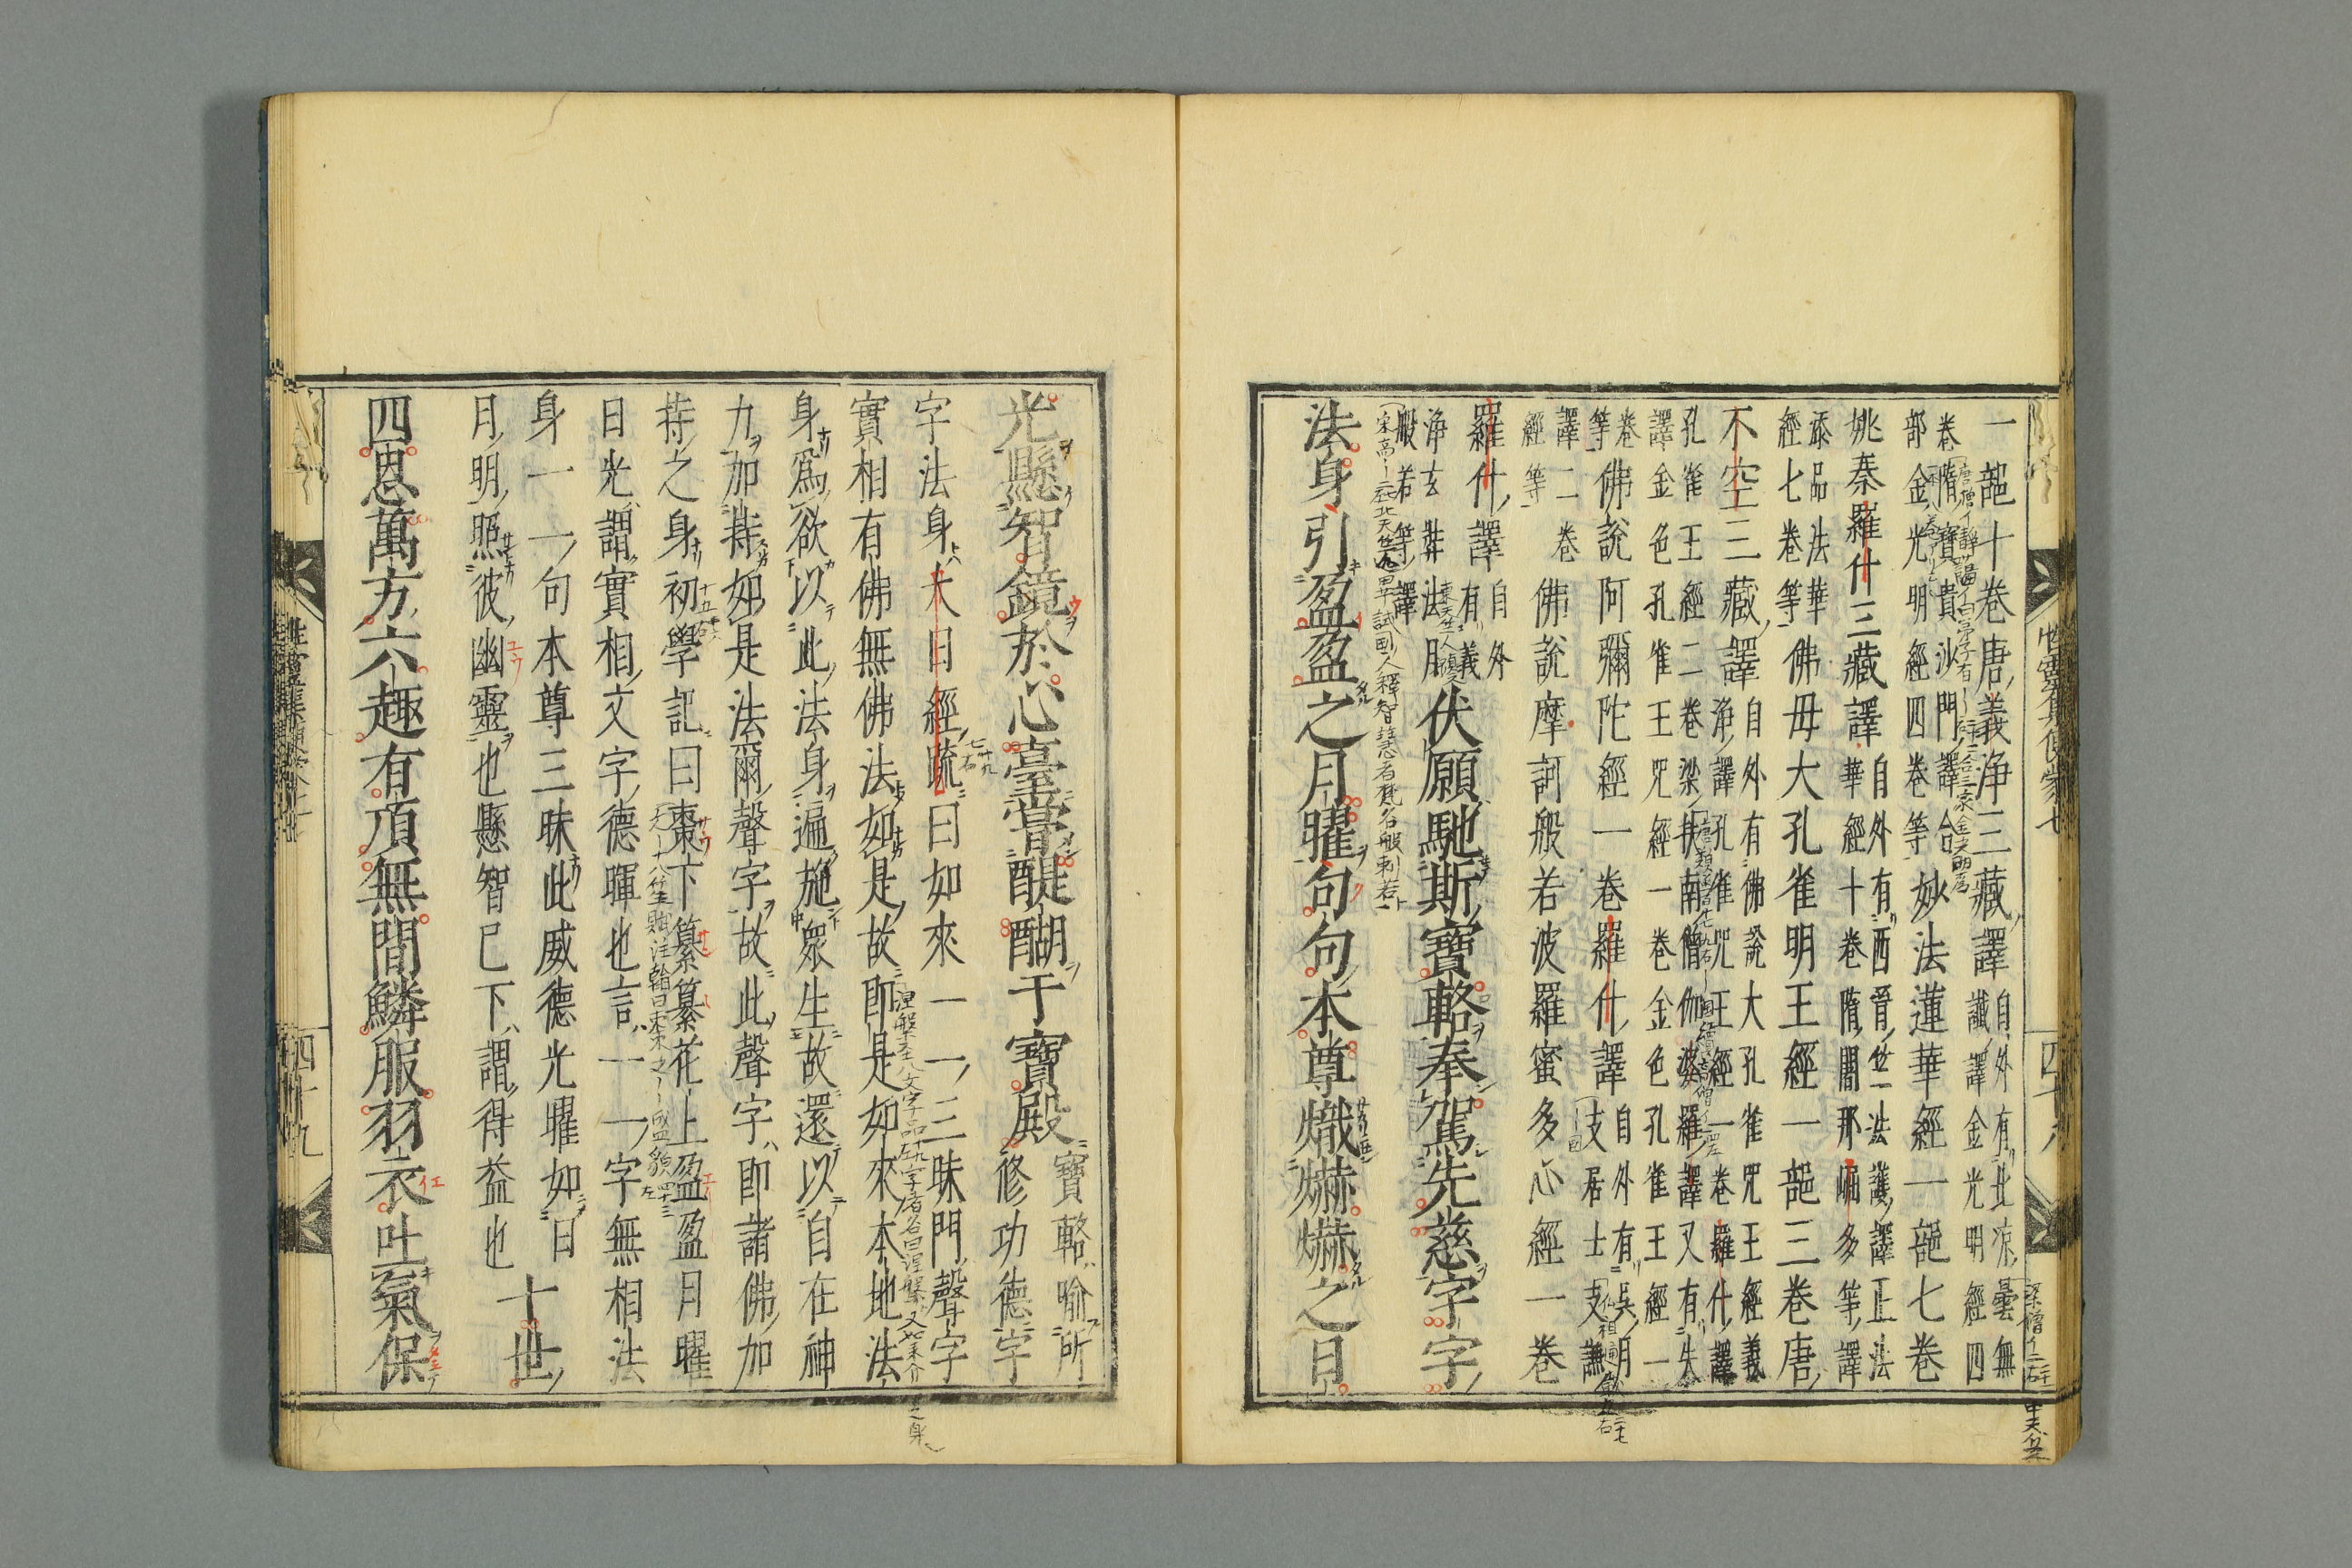 一部十卷唐義淨三藏譯自外有北涼曇無讖譯金光明經四
卷隋寶貴沙門譯合部金光明經四卷等妙法蓮華經一部七卷
姚秦羅什三藏譯自外有西晉竺法護譯正法華經十卷隋闍那崛多等譯
添品法華經七卷等佛母大孔雀明王經一部三卷唐
不空三藏譯自外有佛說大孔雀咒王經義淨譯孔雀咒王經一卷羅什譯
孔雀王經二卷梁扶南僧伽婆羅譯又有失譯金色孔雀王咒經一卷金色孔雀王經一
卷等佛說阿彌陀經一卷羅什譯自外有吳月支居士支謙
譯二卷經等佛說摩訶般若波羅蜜多心經一卷
羅什譯自外有義
淨玄奘法月般若等譯伏願馳斯寶輅奉駕先慈字字
法身引盈盈之月曜句句本尊熾爀爀之日
光懸智鏡於心臺嘗醍醐于寶殿寶輅喻所修功德字
字法身大日經疏曰如來一一三昧門聲字
實相有佛無佛法如是故即是如來本地法
身爲欲以此法身遍施衆生故還以自在神
力加持如是法爾聲字故此聲字即諸佛加
持之身初學記曰棗下纂纂花上盈盈月曜
日光謂實相文字德暉也言一一字無相法
身一一句本尊三昧此威德光曜如日
月明照彼幽靈也懸智已下謂得益也十世
四恩萬方六趣有頂無間鱗服羽衣吐氣保
性靈集便蒙七
四十八
四十九